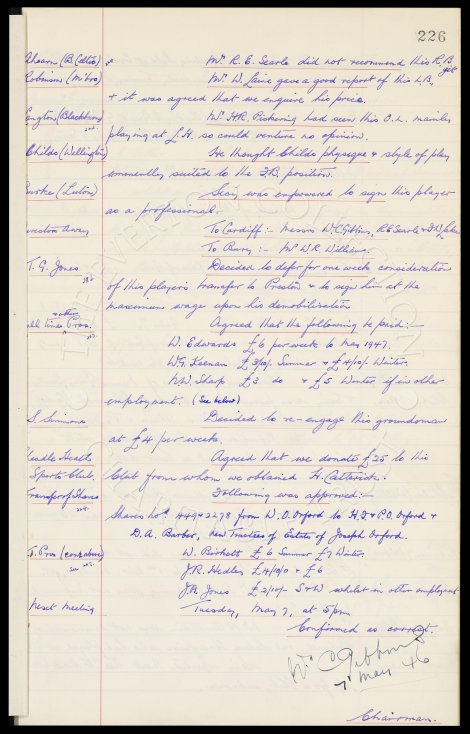 226
Ahearn (B. Celtic) Mr. R. E. Searle did not recommend this R.B. yet
Robinson (M'bro) Mr. W. Laine gave a good report of this L.B.
& it was agreed that we enquire his price.
Langton (Blackburn) Mr. H.R. Pickering had seen this O.L. mainly
playing at L.H. so could venture no opinion.
Childs (Wellington) We thought Childs physique & style of play
eminently suited to the F.B. position.
Burke (Luton) Secy was empowered to sign this player
as a professional.
Directors Away To Cardiff :- Messrs W.C. Gibbins, R.E. Searle &
To Bury :- Mr W.R. Williams.
T. G. Jones Decided to defer for one week consideration
of this players transfer to Preston & to sign him at the
maximum wage upon his demobilisation
full time & other Pros. Agreed that the following be paid :-
W. Edwards £6 per week to May 1947.
W.G. Keenan £3/10/- Summer & £4/10/- Winter.
N.W. Sharp £3 do & £5 Winter if in other
employment. (See below)
S. Simmons Decided to re-engage this groundsman
at £4 per week.
Cheadle Heath Agreed that we donate £25 to this
Sports Club. Club from whom we obtained H. Catterick.
Transfer of Shares Following was approved :-
Shares Nos 449 & 2278 from W. O. Oxford to H.D & P.O. Oxford &
D. A. Barber, new Trustees of Estate of Joseph Oxford.
F. Pros (con. above) W. Birkett £6 Summer £7 Winter.
J.R. Hedley £4/10/0 & £6
J.A. Jones £2/10/- S & W whilst in other employment
Next Meeting Tuesday, May 7, at 5pm
Confirmed as correct.
Wm C Gibbins
7 May 46
Chairman.